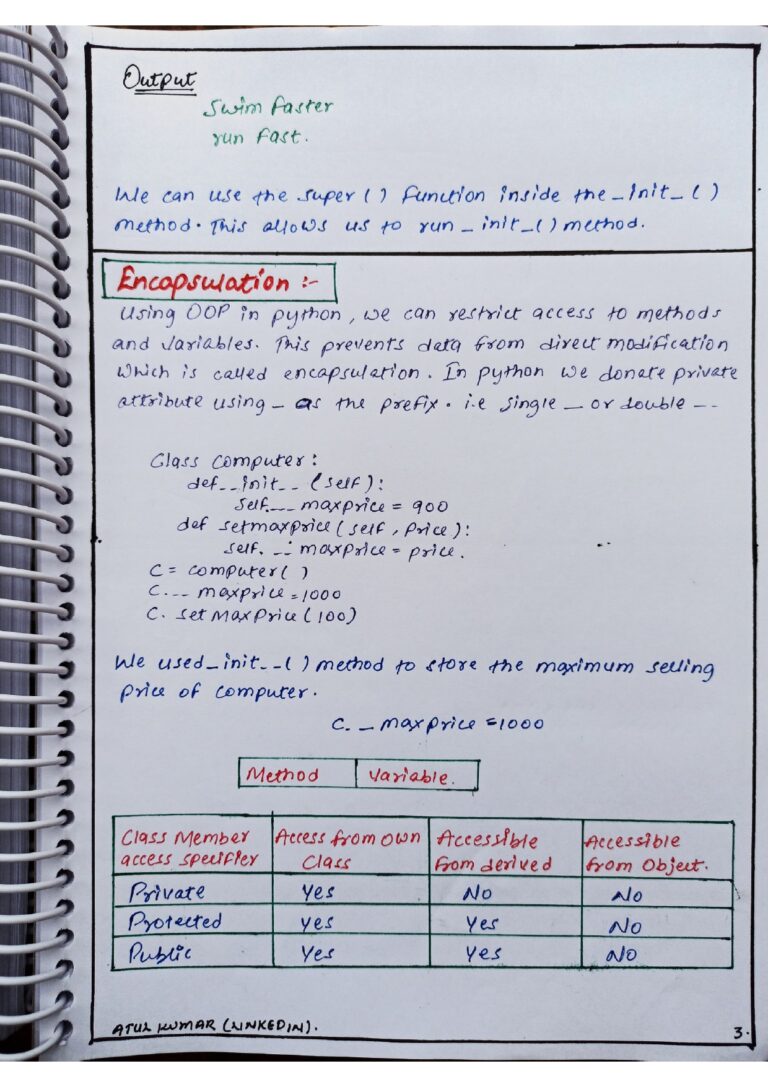 Output
Swim faster
run fast.
We can use the super ( ) function inside the _init_ ( )
method. This allows us to run _ init _( ) method.
Encapsulation :-
Using OOP in python, we can restrict access to methods
and variables. This prevents data from direct modification
which is called encapsulation. In python we donate private
attribute using _ as the prefix. i.e single _ or double --
Class Computer :
def __init__ (self) :
self.__ maxprice = 900
def setmaxprice (self, Price) :
self. __ maxprice = price.
C = computer( )
C.__ maxprice = 1000
C. set MaxPrice (100)
We used _init_ _( ) method to store the maximum selling
price of computer.
C. _ maxprice = 1000
Method Variable.
Class Member Access from own Accessible Accessible
access specifier Class from derived from Object.
Private Yes No No
Protected Yes Yes No
Public Yes Yes No
ATUL KUMAR (LINKEDIN). 3.